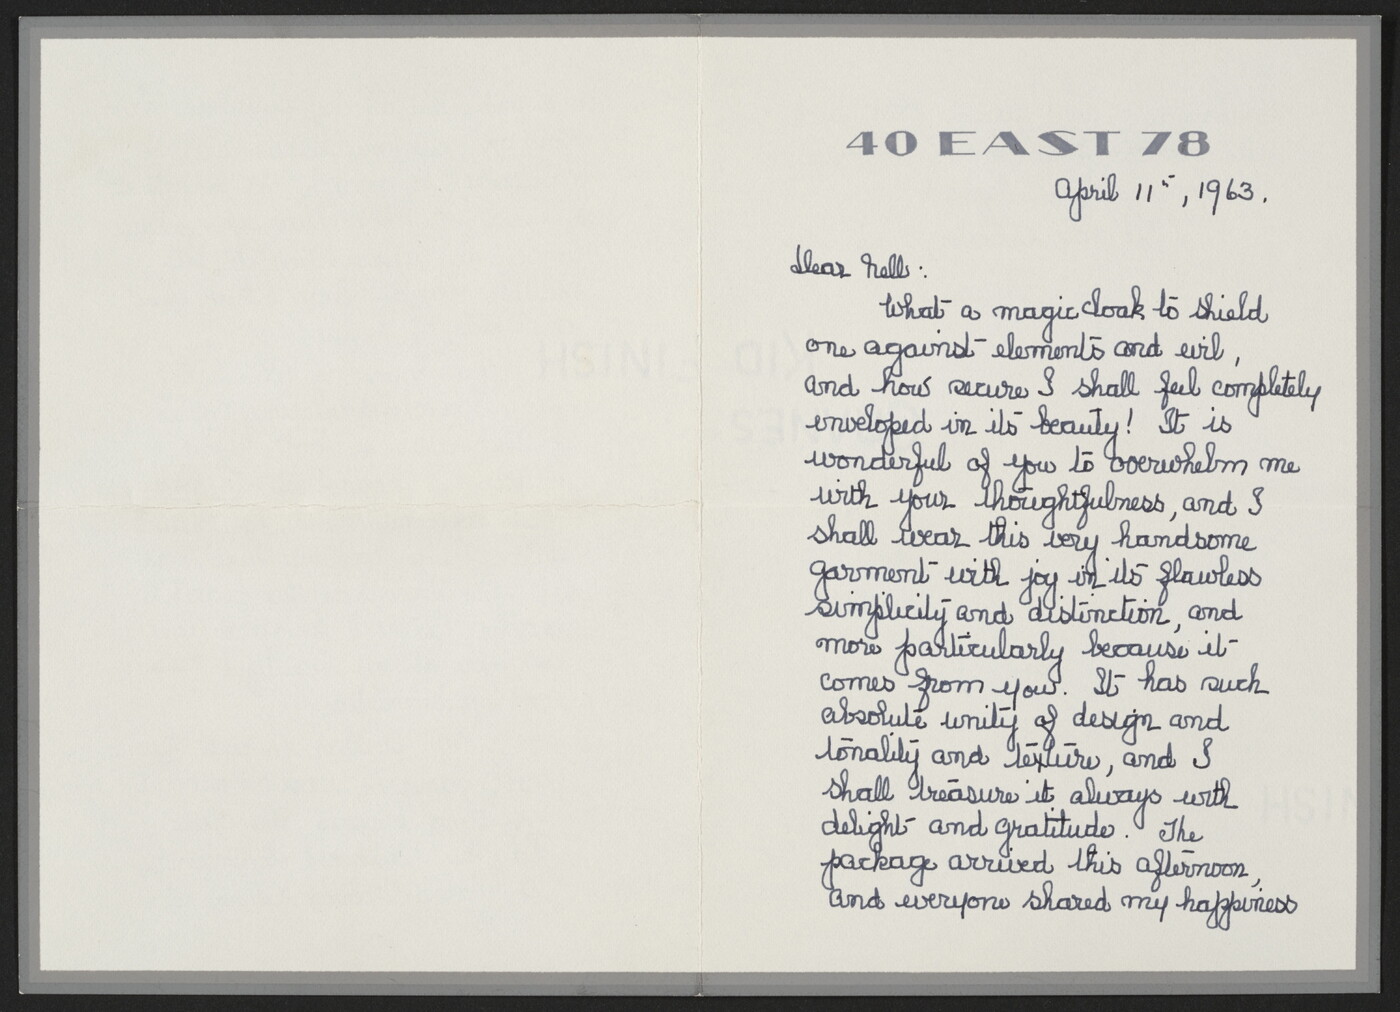 40 EAST 78
April 11th, 1963.
Dear Nell:
What a magic cloak to shield
one against elements and evil,
and how secure I shall feel completely
enveloped in its beauty! It is
wonderful of you to overwhelm me
with your thoughtfulness, and I
shall wear this very handsome
garment with joy in its flawless
simplicity and distinction, and
more particularly because it
comes from you. It has such
absolute unity of design and
tonality and texture, and I
shall treasure it always with
delight and gratitude. The
package arrived this afternoon,
and everyone shared my happiness
KID FINISH